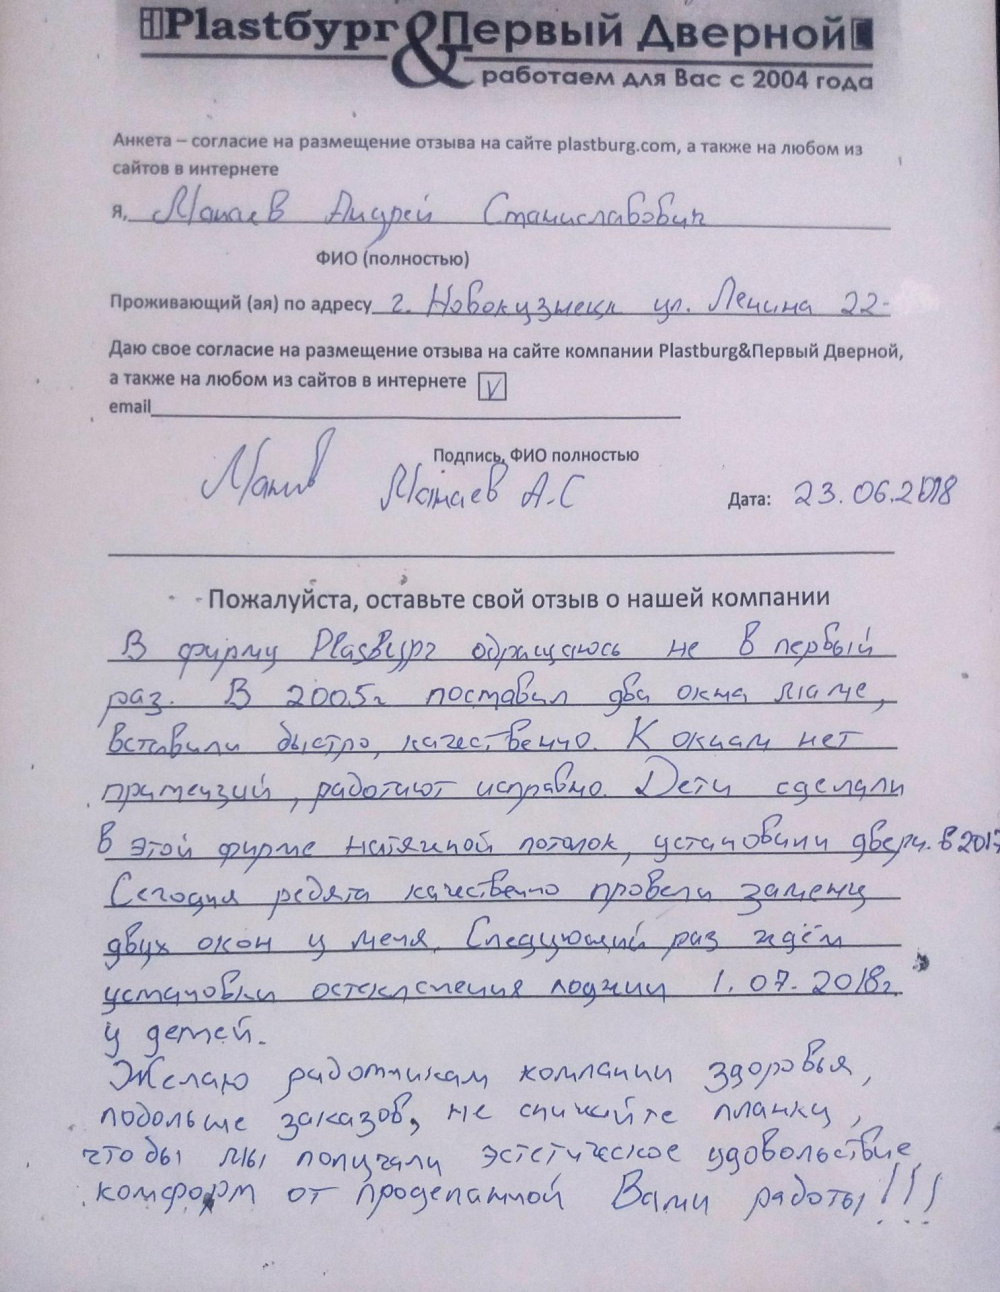 Plastбург & Первый Дверной
работаем для Вас с 2004 года
Анкета – согласие на размещение отзыва на сайте plastburg.com, а также на любом из
сайтов в интернете
Я, Андрей Станиславович
ФИО (полностью)
Проживающий (ая) по адресу г. Новокузнецк ул. Ленина 22-
Даю свое согласие на размещение отзыва на сайте компании Plastburg&Первый Дверной,
а также на любом из сайтов в интернете V
email
Подпись, ФИО полностью
А.С
Дата: 23.06.2018
Пожалуйста, оставьте свой отзыв о нашей компании
В фирму Plastбург обращаюсь не в первый
раз. В 2005г поставил два окна маме,
вставили быстро, качественно. К окнам нет
притензий, работают исправно. Дети сделали
в этой фирме натяжной потолок, установили двери. в 2017
Сегодня ребята качественно провели замену
двух окон у меня. Следующий раз ждём
установки остекления лоджии 1.07.2018г.
у детей.
Желаю работникам компании здоровья,
побольше заказов, не снижайте планку,
чтобы мы получали эстетическое удовольствие
комформ от проделанной Вами работы!!!